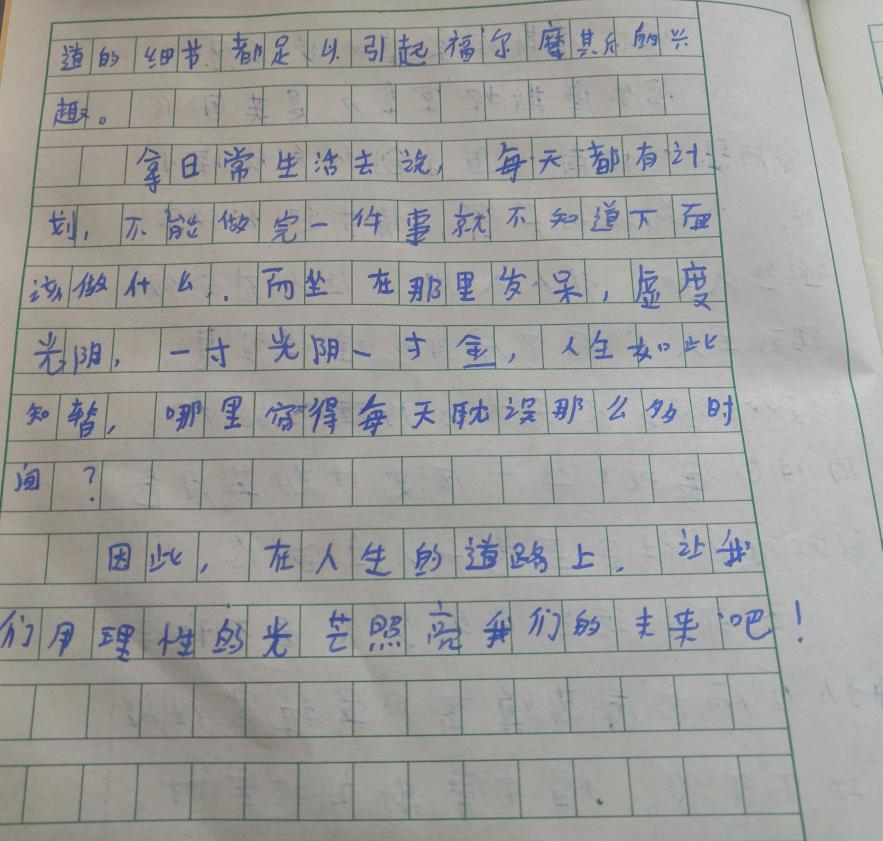 道的细节都足以引起福尔摩其斤的兴
趣。
拿日常生活去说，每天都有计
划，不能做完一件事就不知道下面
该做什么，而坐在那里发呆，虚度
光阴，一寸光阴一寸金，人生如此
知暂，哪里容得每天耽误那么多时
间？
因此，在人生的道路上，让我
们用理性的光芒照亮我们的未来吧！